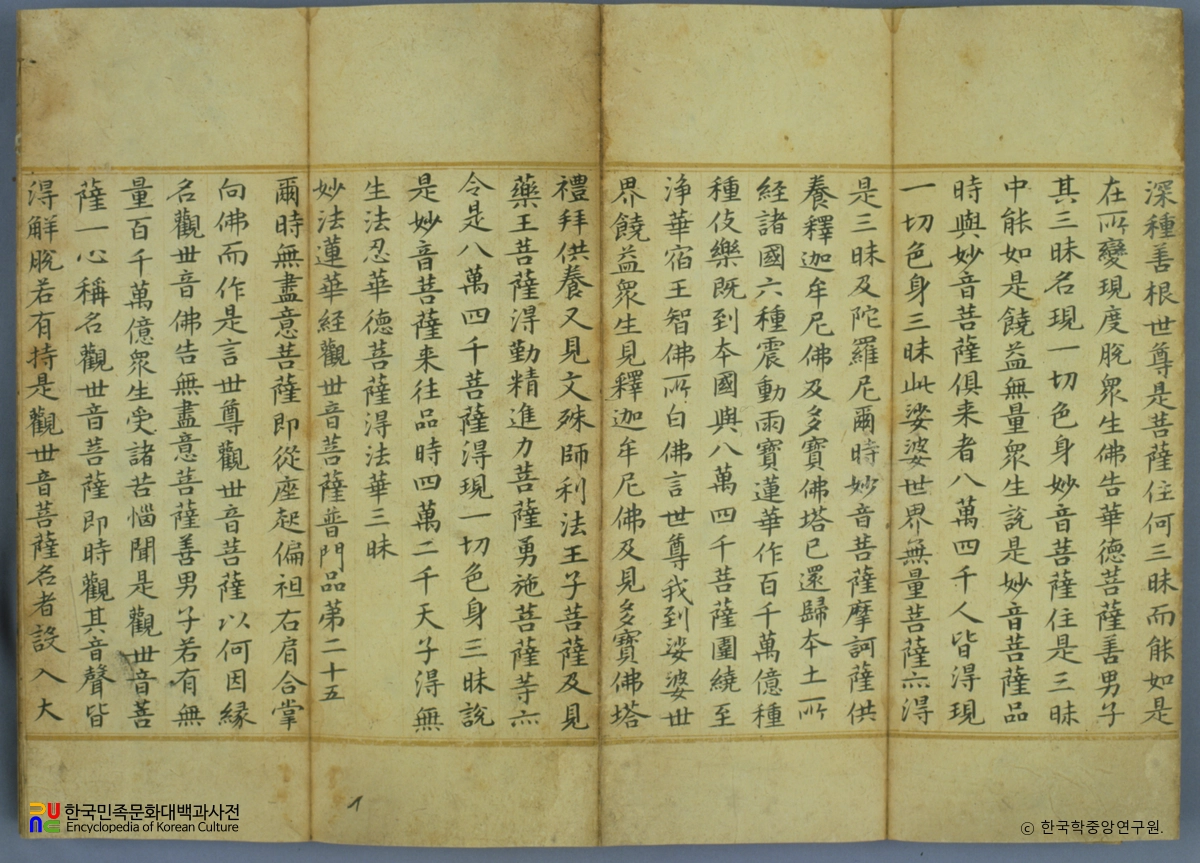 深種善根世尊是菩薩住何三昧而能如是
在所變現度脫衆生佛告華德菩薩善男子
其三昧名現一切色身妙音菩薩住是三昧
中能如是饒益無量衆生說是妙音菩薩品
時與妙音菩薩俱来者八萬四千人皆得現
一切色身三昧此娑婆世界無量菩薩亦得
是三昧及陀羅尼爾時妙音菩薩摩訶薩供
養釋迦牟尼佛及多寶佛塔已還歸本土所
經諸國六種震動雨寶蓮華作百千萬億種
種伎樂既到本國與八萬四千菩薩圍繞至
淨華宿王智佛所白佛言世尊我到娑婆世
界饒益衆生見釋迦牟尼佛及見多寶佛塔
禮拜供養又見文殊師利法王子菩薩及見
藥王菩薩得勤精進力菩薩勇施菩薩等亦
令是八萬四千菩薩得現一切色身三昧說
是妙音菩薩来往品時四萬二千天子得無
生法忍華德菩薩得法華三昧
妙法蓮華經觀世音菩薩普門品第二十五
爾時無盡意菩薩即從座起偏袒右肩合掌
向佛而作是言世尊觀世音菩薩以何因緣
名觀世音佛告無盡意菩薩善男子若有無
量百千萬億衆生受諸苦惱聞是觀世音菩
薩一心稱名觀世音菩薩即時觀其音聲皆
得解脫若有持是觀世音菩薩名者設入大
1
한국민족문화대백과사전
Encyclopedia of Korean Culture
ⓒ 한국학중앙연구원.